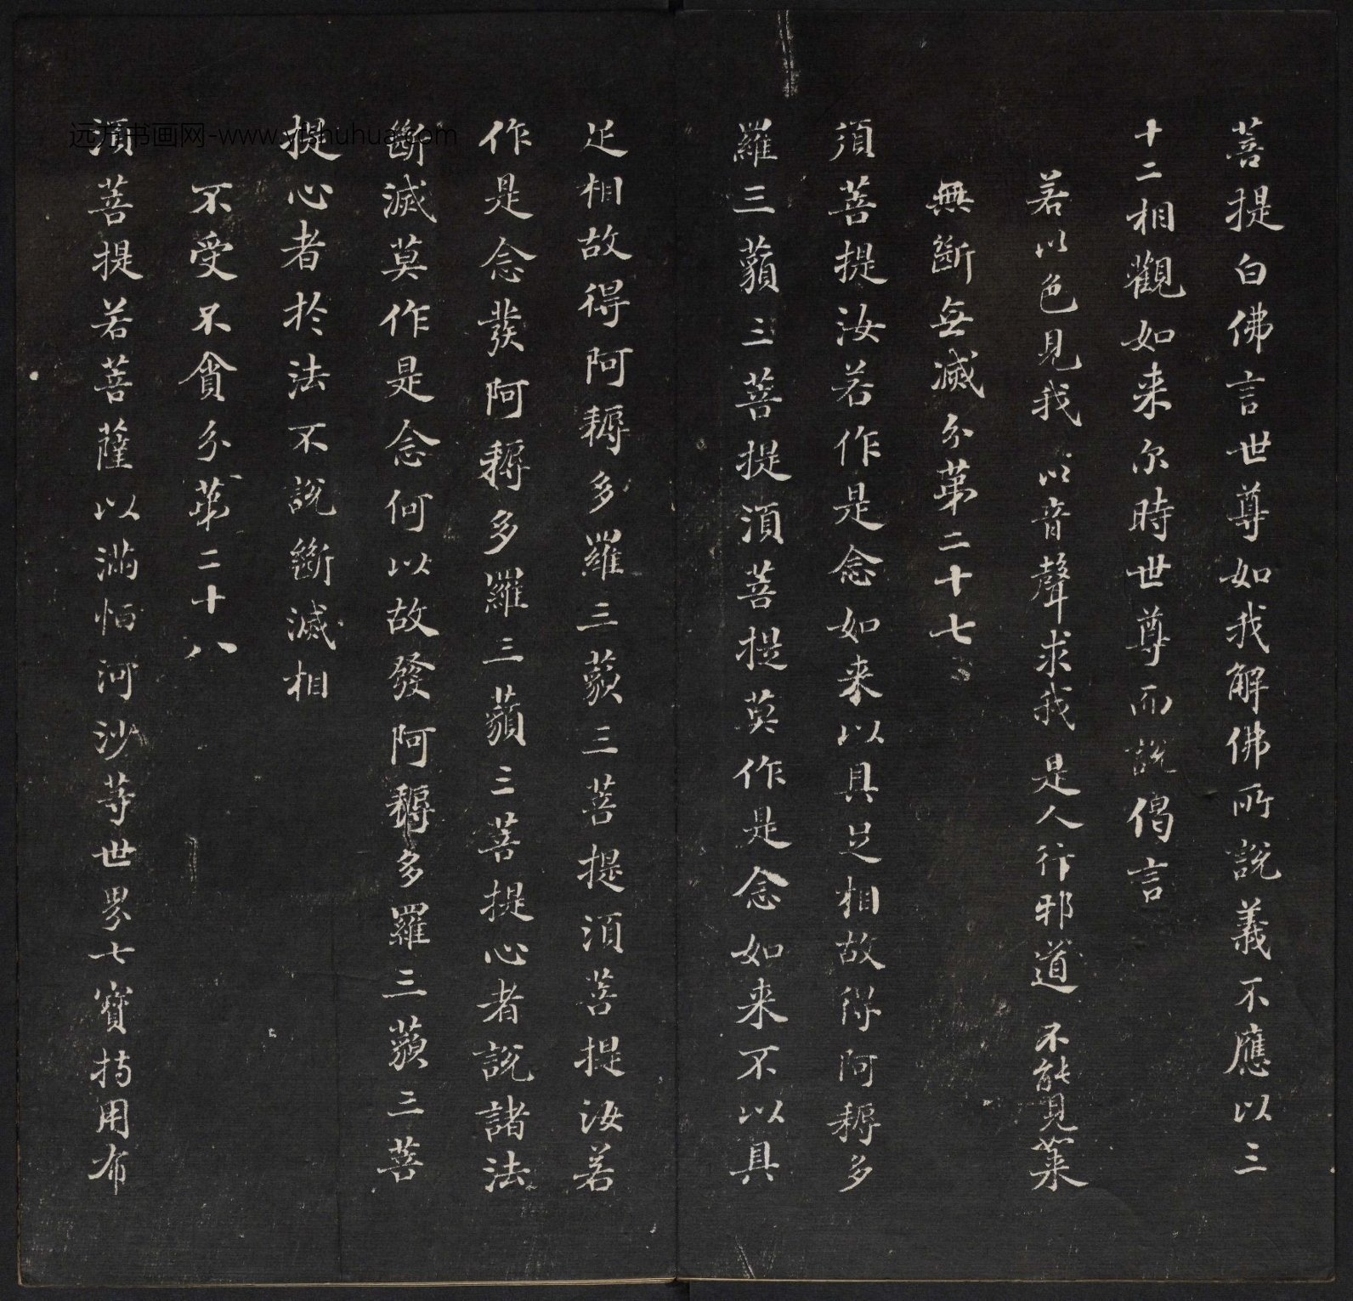 菩提白佛言世尊如我解佛所說義不應以三
十二相觀如来尔時世尊而說偈言
若以色見我 以音聲求我 是人行邪道 不能見
無斷無滅分第二十七
須菩提汝若作是念如来以具足相故得阿耨多
羅三藐三菩提須菩提莫作是念如来不以具
足相故得阿耨多羅三藐三菩提須菩提汝若
作是念發阿耨多羅三藐三菩提心者說諸法
斷滅莫作是念何以故發阿耨多羅三藐三菩
提心者於法不說斷滅相
不受不貪分第二十八
須菩提若菩薩以滿恒河沙等世界七寶持用布
远方书画网-www.yishuhua.com